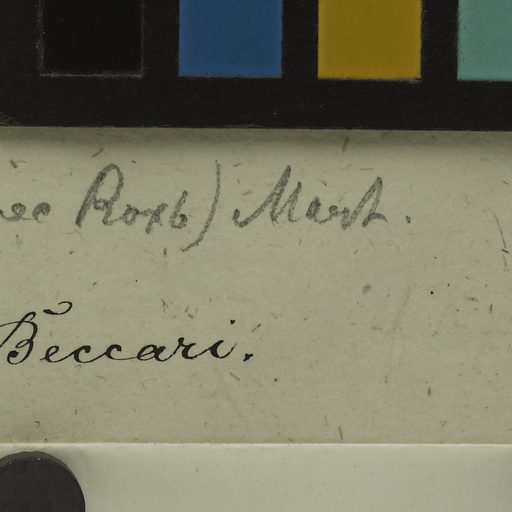 nec Roxb) Mart.
Beccari.